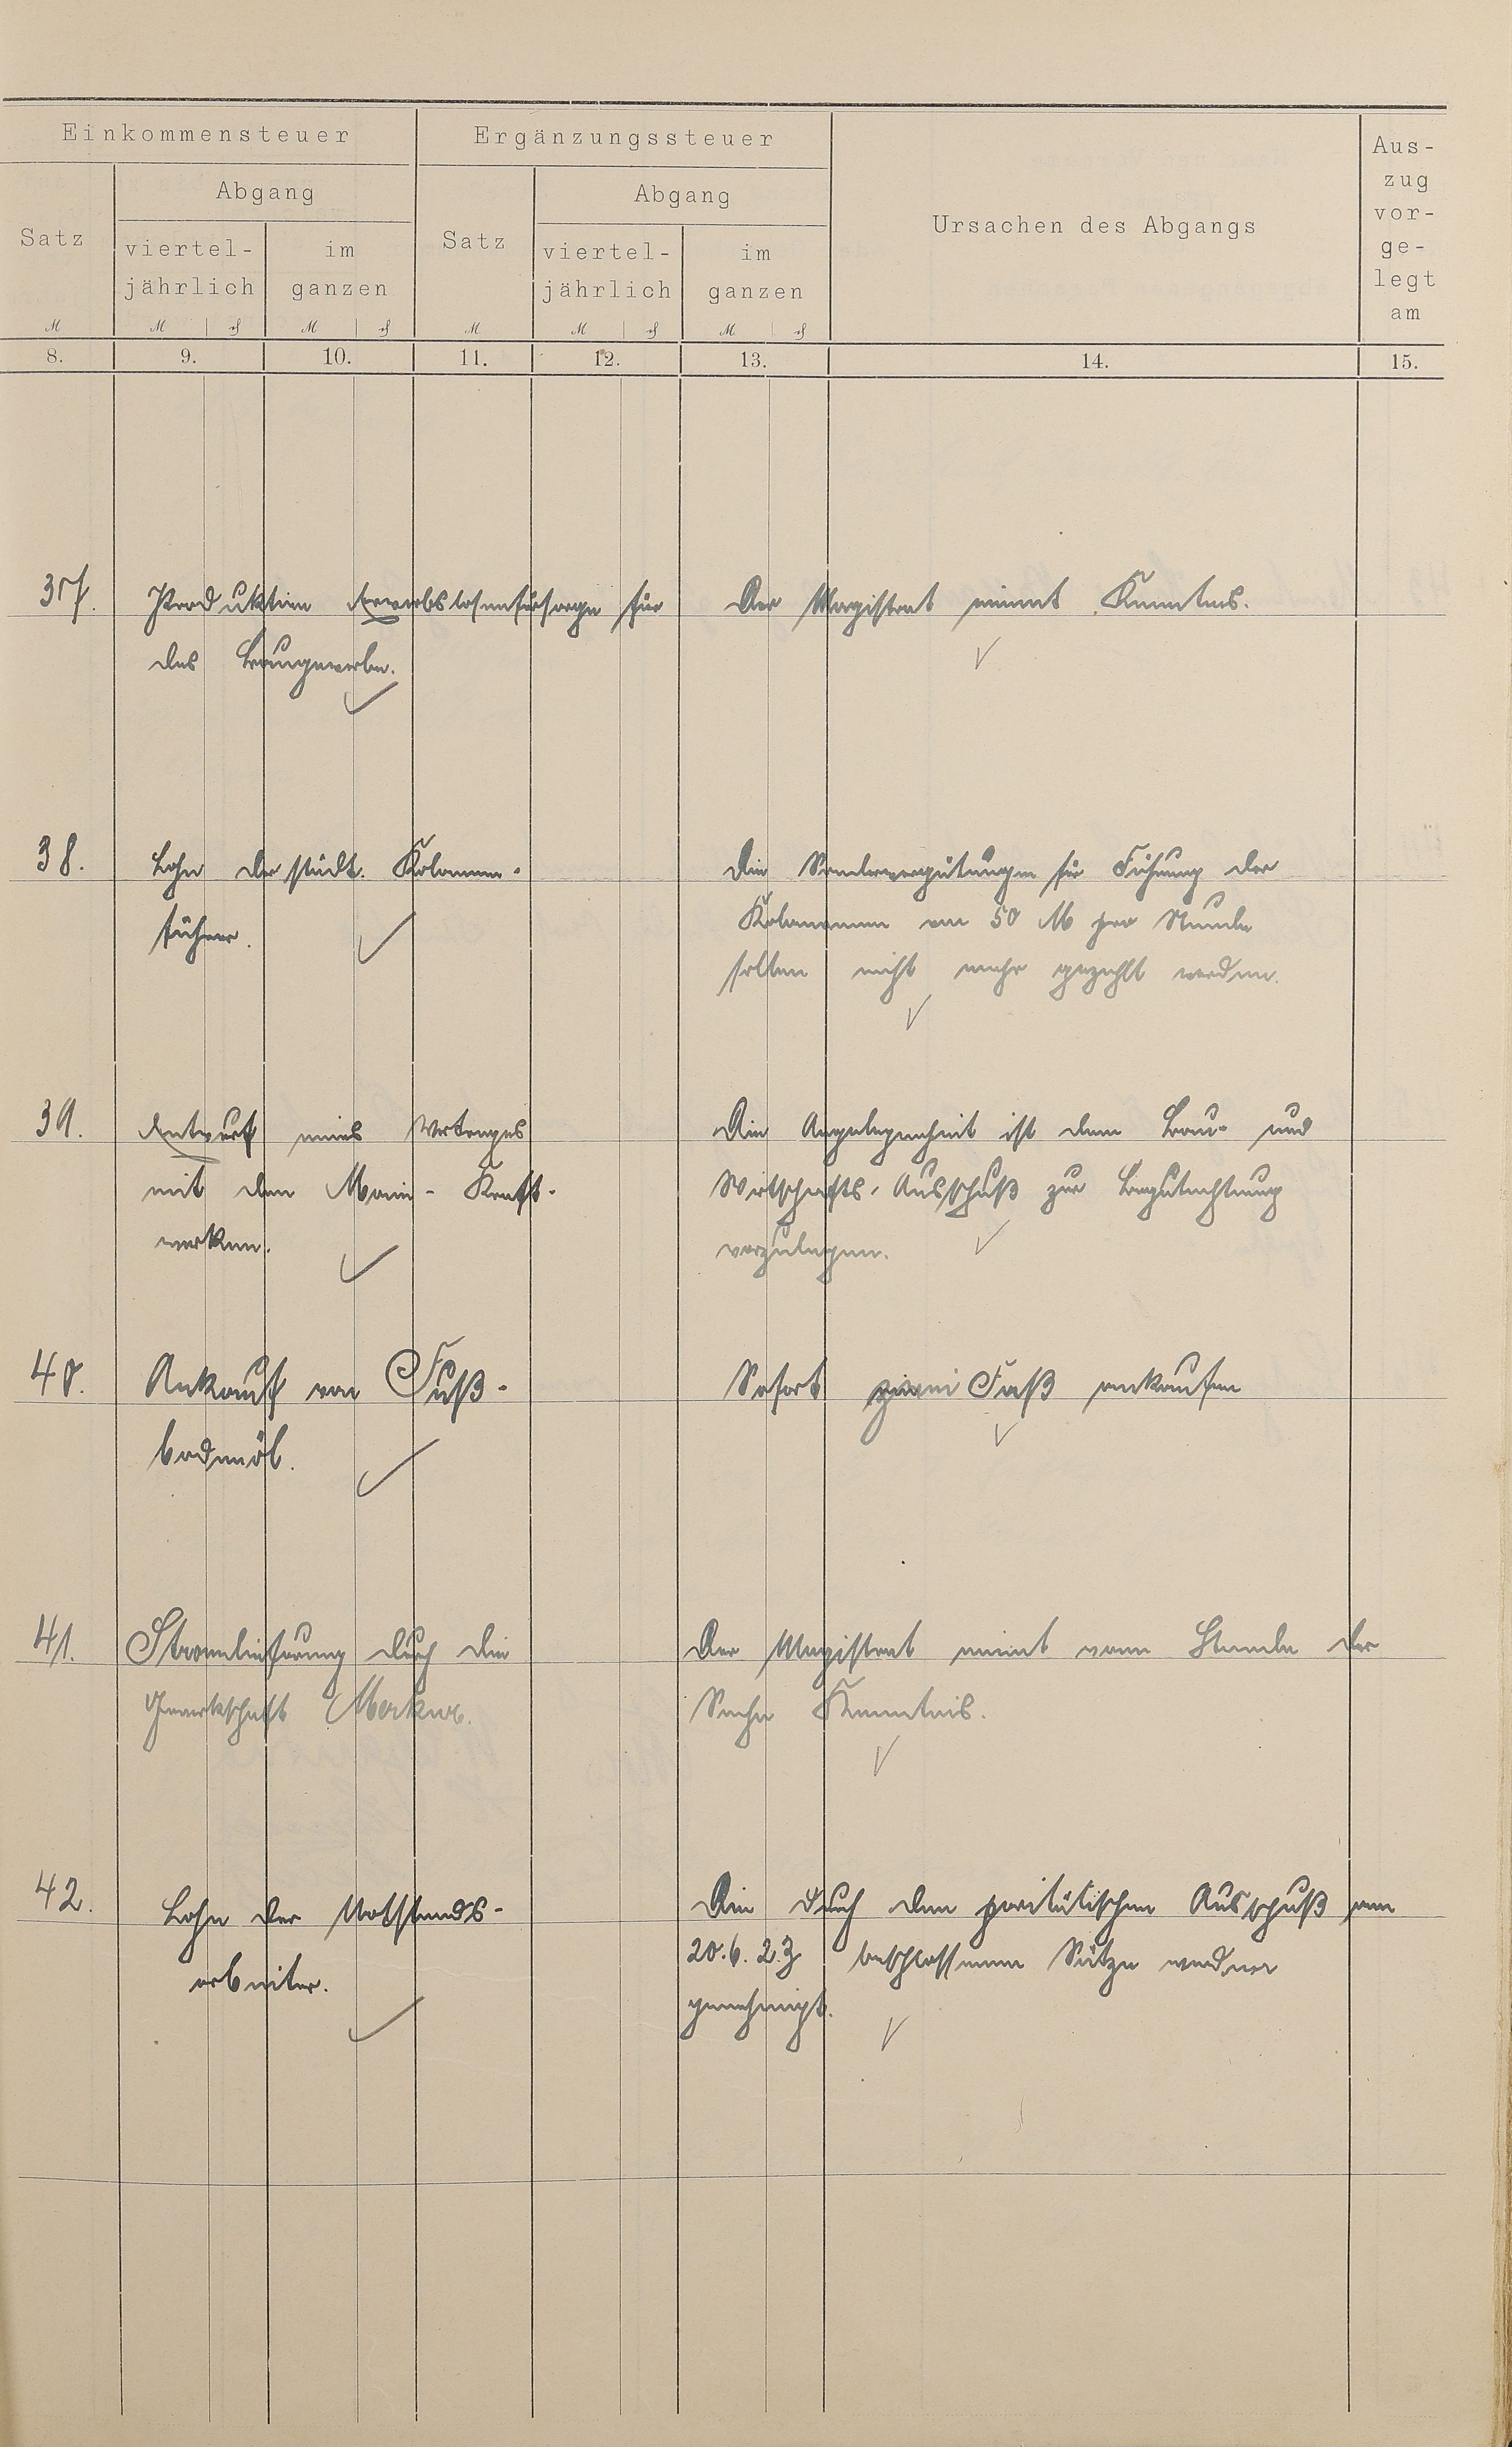 Einkommensteuer
Ergänzungssteuer
Ursachen des Abgangs
Aus-
zug
vor-
ge-
legt
am
Satz
Abgang
viertel-
jährlich
im
ganzen
Satz
Abgang
viertel-
jährlich
im
ganzen
M
M
M
M
M
M
8.
9.
10.
11.
12.
13.
14.
15.
37. Produktive Erwerbslosenfürsorge für
das Baugewerbe.
Der Magistrat nimmt Kenntnis.
38. Lohn der städt. Kolonnen-
führer.
Die Sondervergütungen für Führung der
Kolonnen von 50 M pro Stunde
sollen nicht mehr gezahlt werden.
39. Entwurf eines Vertrages
mit den Main-Kraft-
werken.
Die Angelegenheit ist dem Bau- und
Wirtschafts-Ausschuß zur Begutachtung
vorzulegen.
40. Ankauf von Fuß-
bodenöl.
Sofort zwei Faß ankaufen
41. Stromlieferung durch die
Gewerkschaft Merkur.
Der Magistrat nimmt vom Stande der
Sache Kenntnis.
42. Lohn der Notstands-
arbeiter.
Die durch den paritätischen Ausschuß am
20.6.23 beschlossenen Sätze werden
genehmigt.